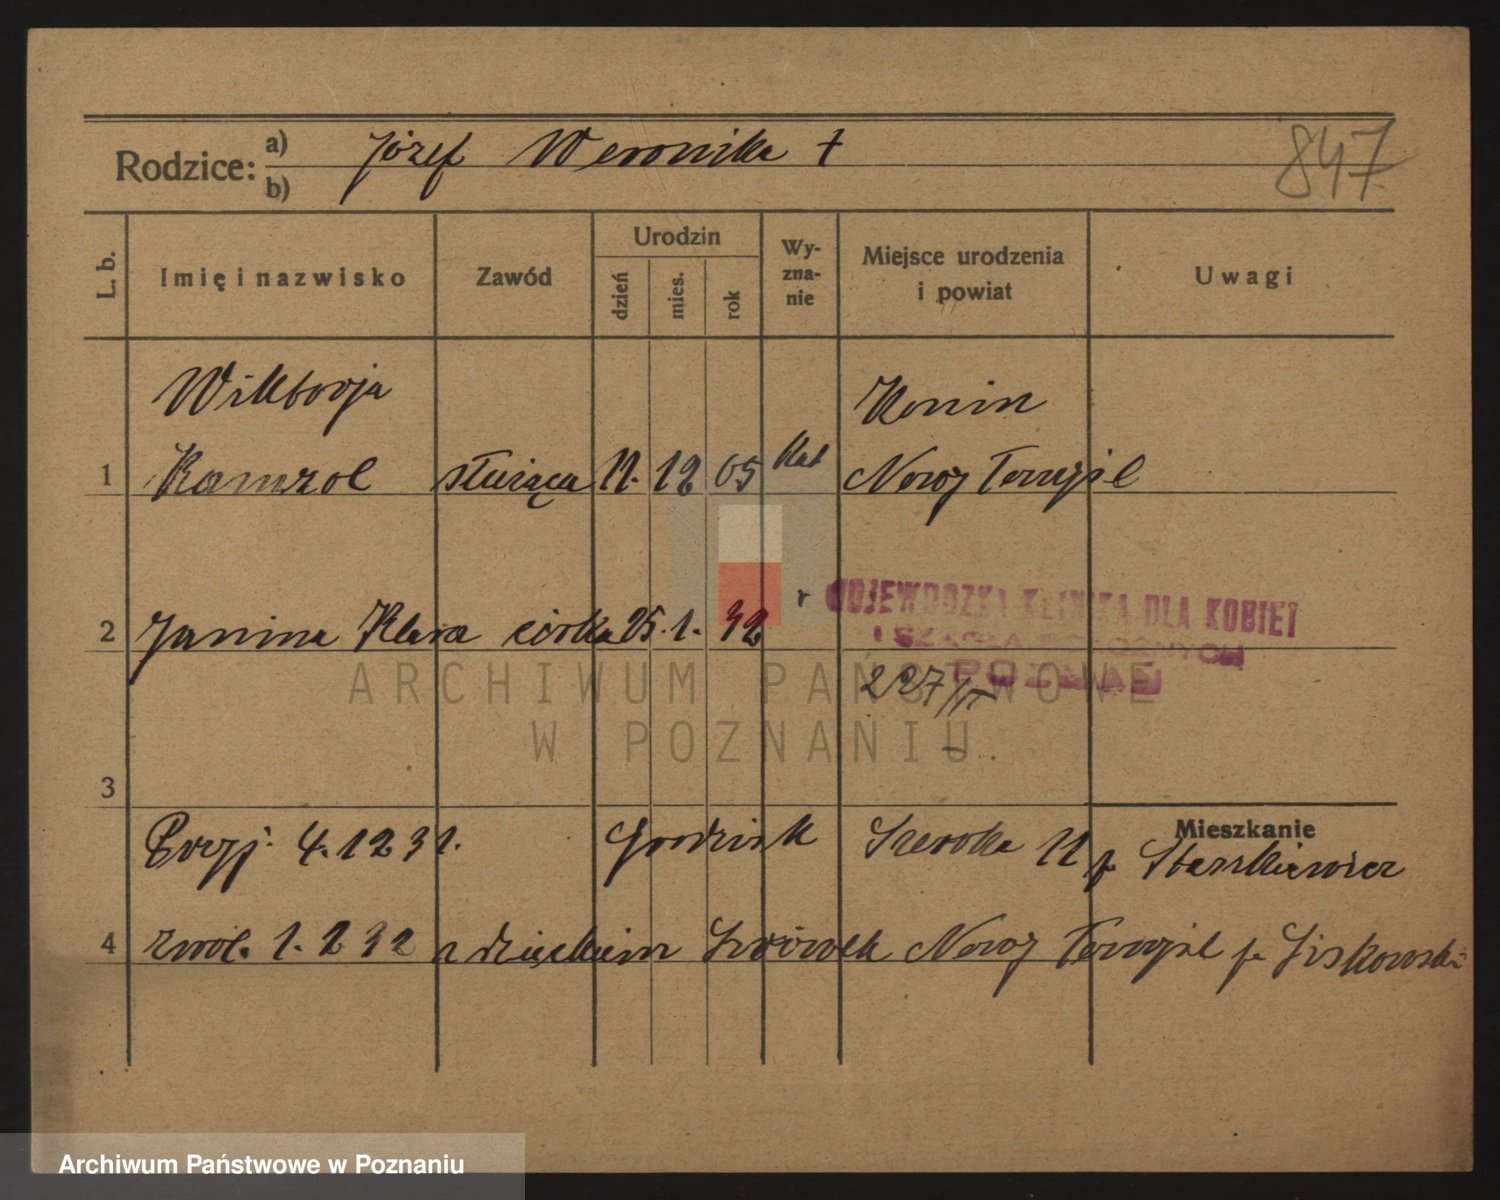 Rodzice: a) Józef Weronika †
b)
847
L. b.
Imię i nazwisko
Zawód
Urodzin
dzień
mies.
rok
Wy-
zna-
nie
Miejsce urodzenia
i powiat
Uwagi
Wiktorja
Konin
1 Kamzol służąca 11. 12 05 Kat Nowy Tomyśl
2 Janina Klara córka 25. 1. 32
WOJEWÓDZKA KLINIKA DLA KOBIET
I SZKOŁA POŁOŻNYCH
POZNAŃ
227/IV
ARCHIWUM PAŃSTWOWE
W POZNANIU
3
Mieszkanie
Przyj. 4. 12 31. Grodzisk Szeroka 11 p. Staszkiewicz
4 zwol. 1. 2 32 z dzieckiem Lwówek Nowy Tomyśl p. Liskowski
Archiwum Państwowe w Poznaniu